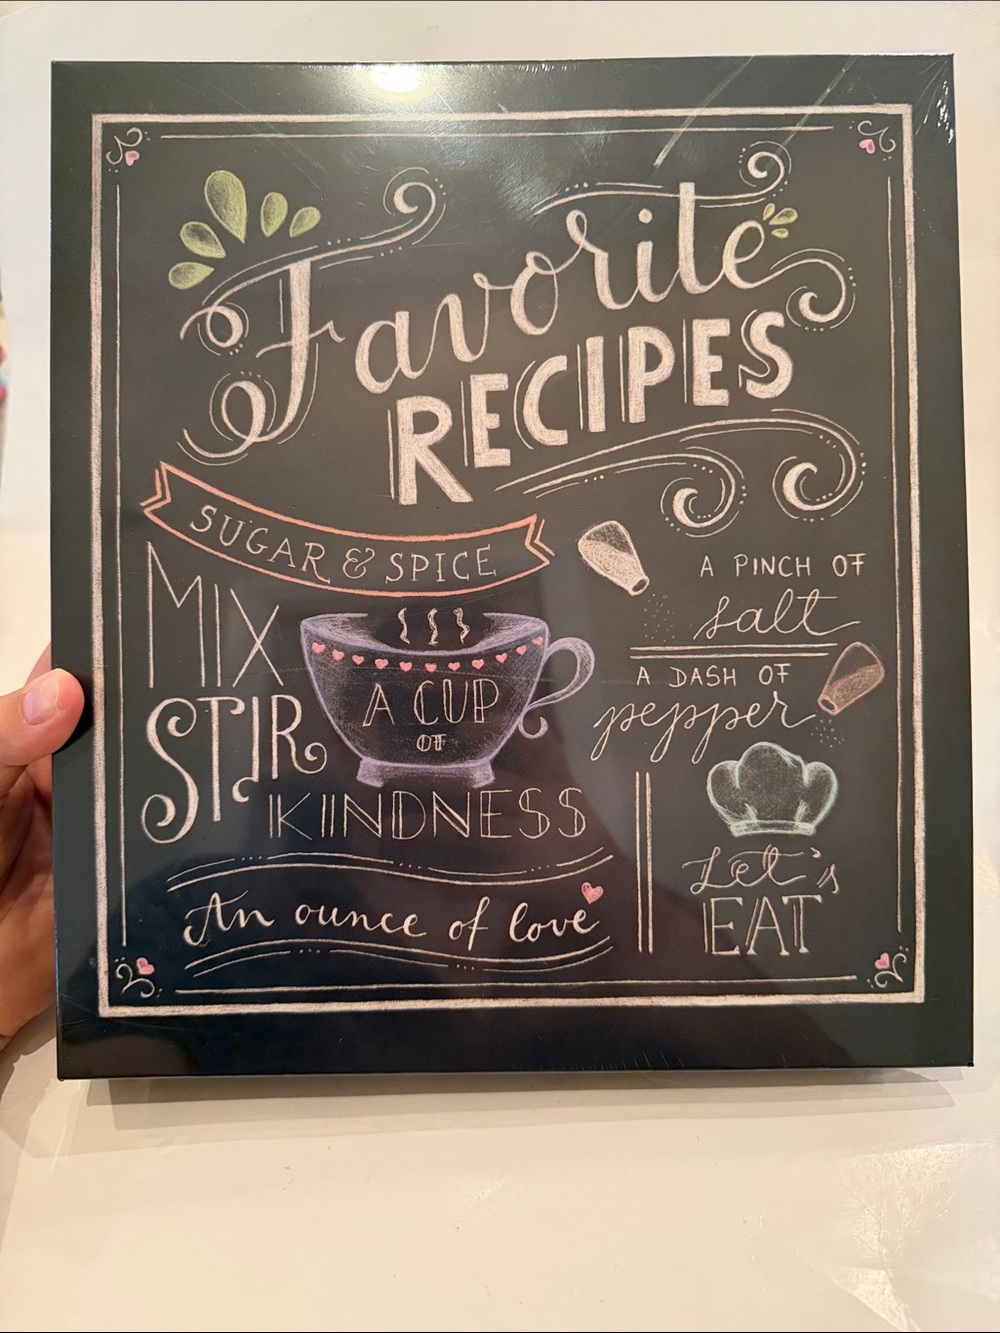 Favorite
RECIPES
SUGAR & SPICE
MIX
STIR
A CUP
OF
KINDNESS
An ounce of love
A PINCH OF
salt
A DASH OF
pepper
Let's
EAT